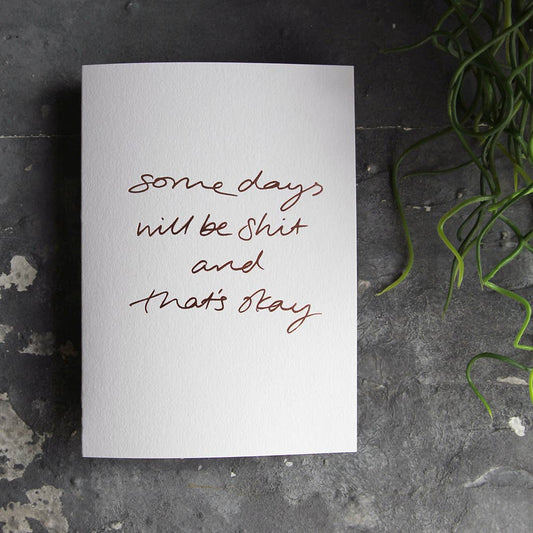 some days
will be shit
and
that's okay